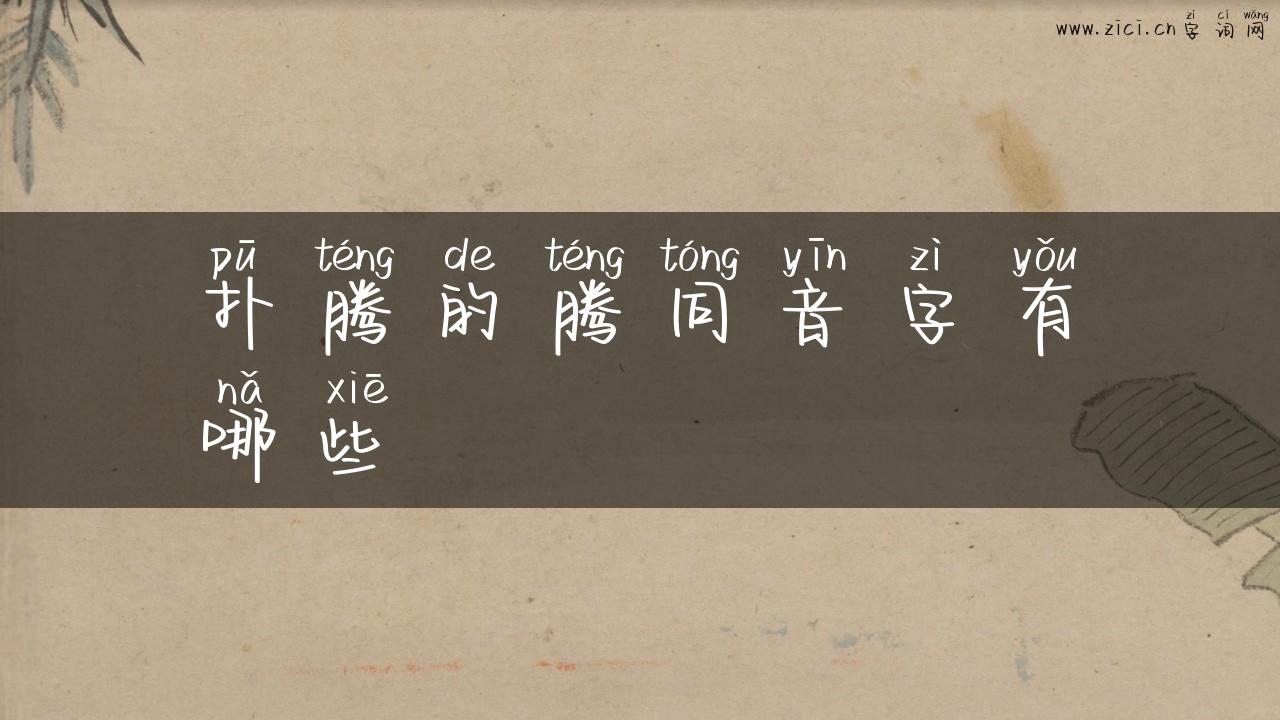 zì cí wǎng
www.zici.cn 字 词 网
pū téng de téng tóng yīn zì yǒu
扑 腾 的 腾 同 音 字 有
nǎ xiē
哪 些